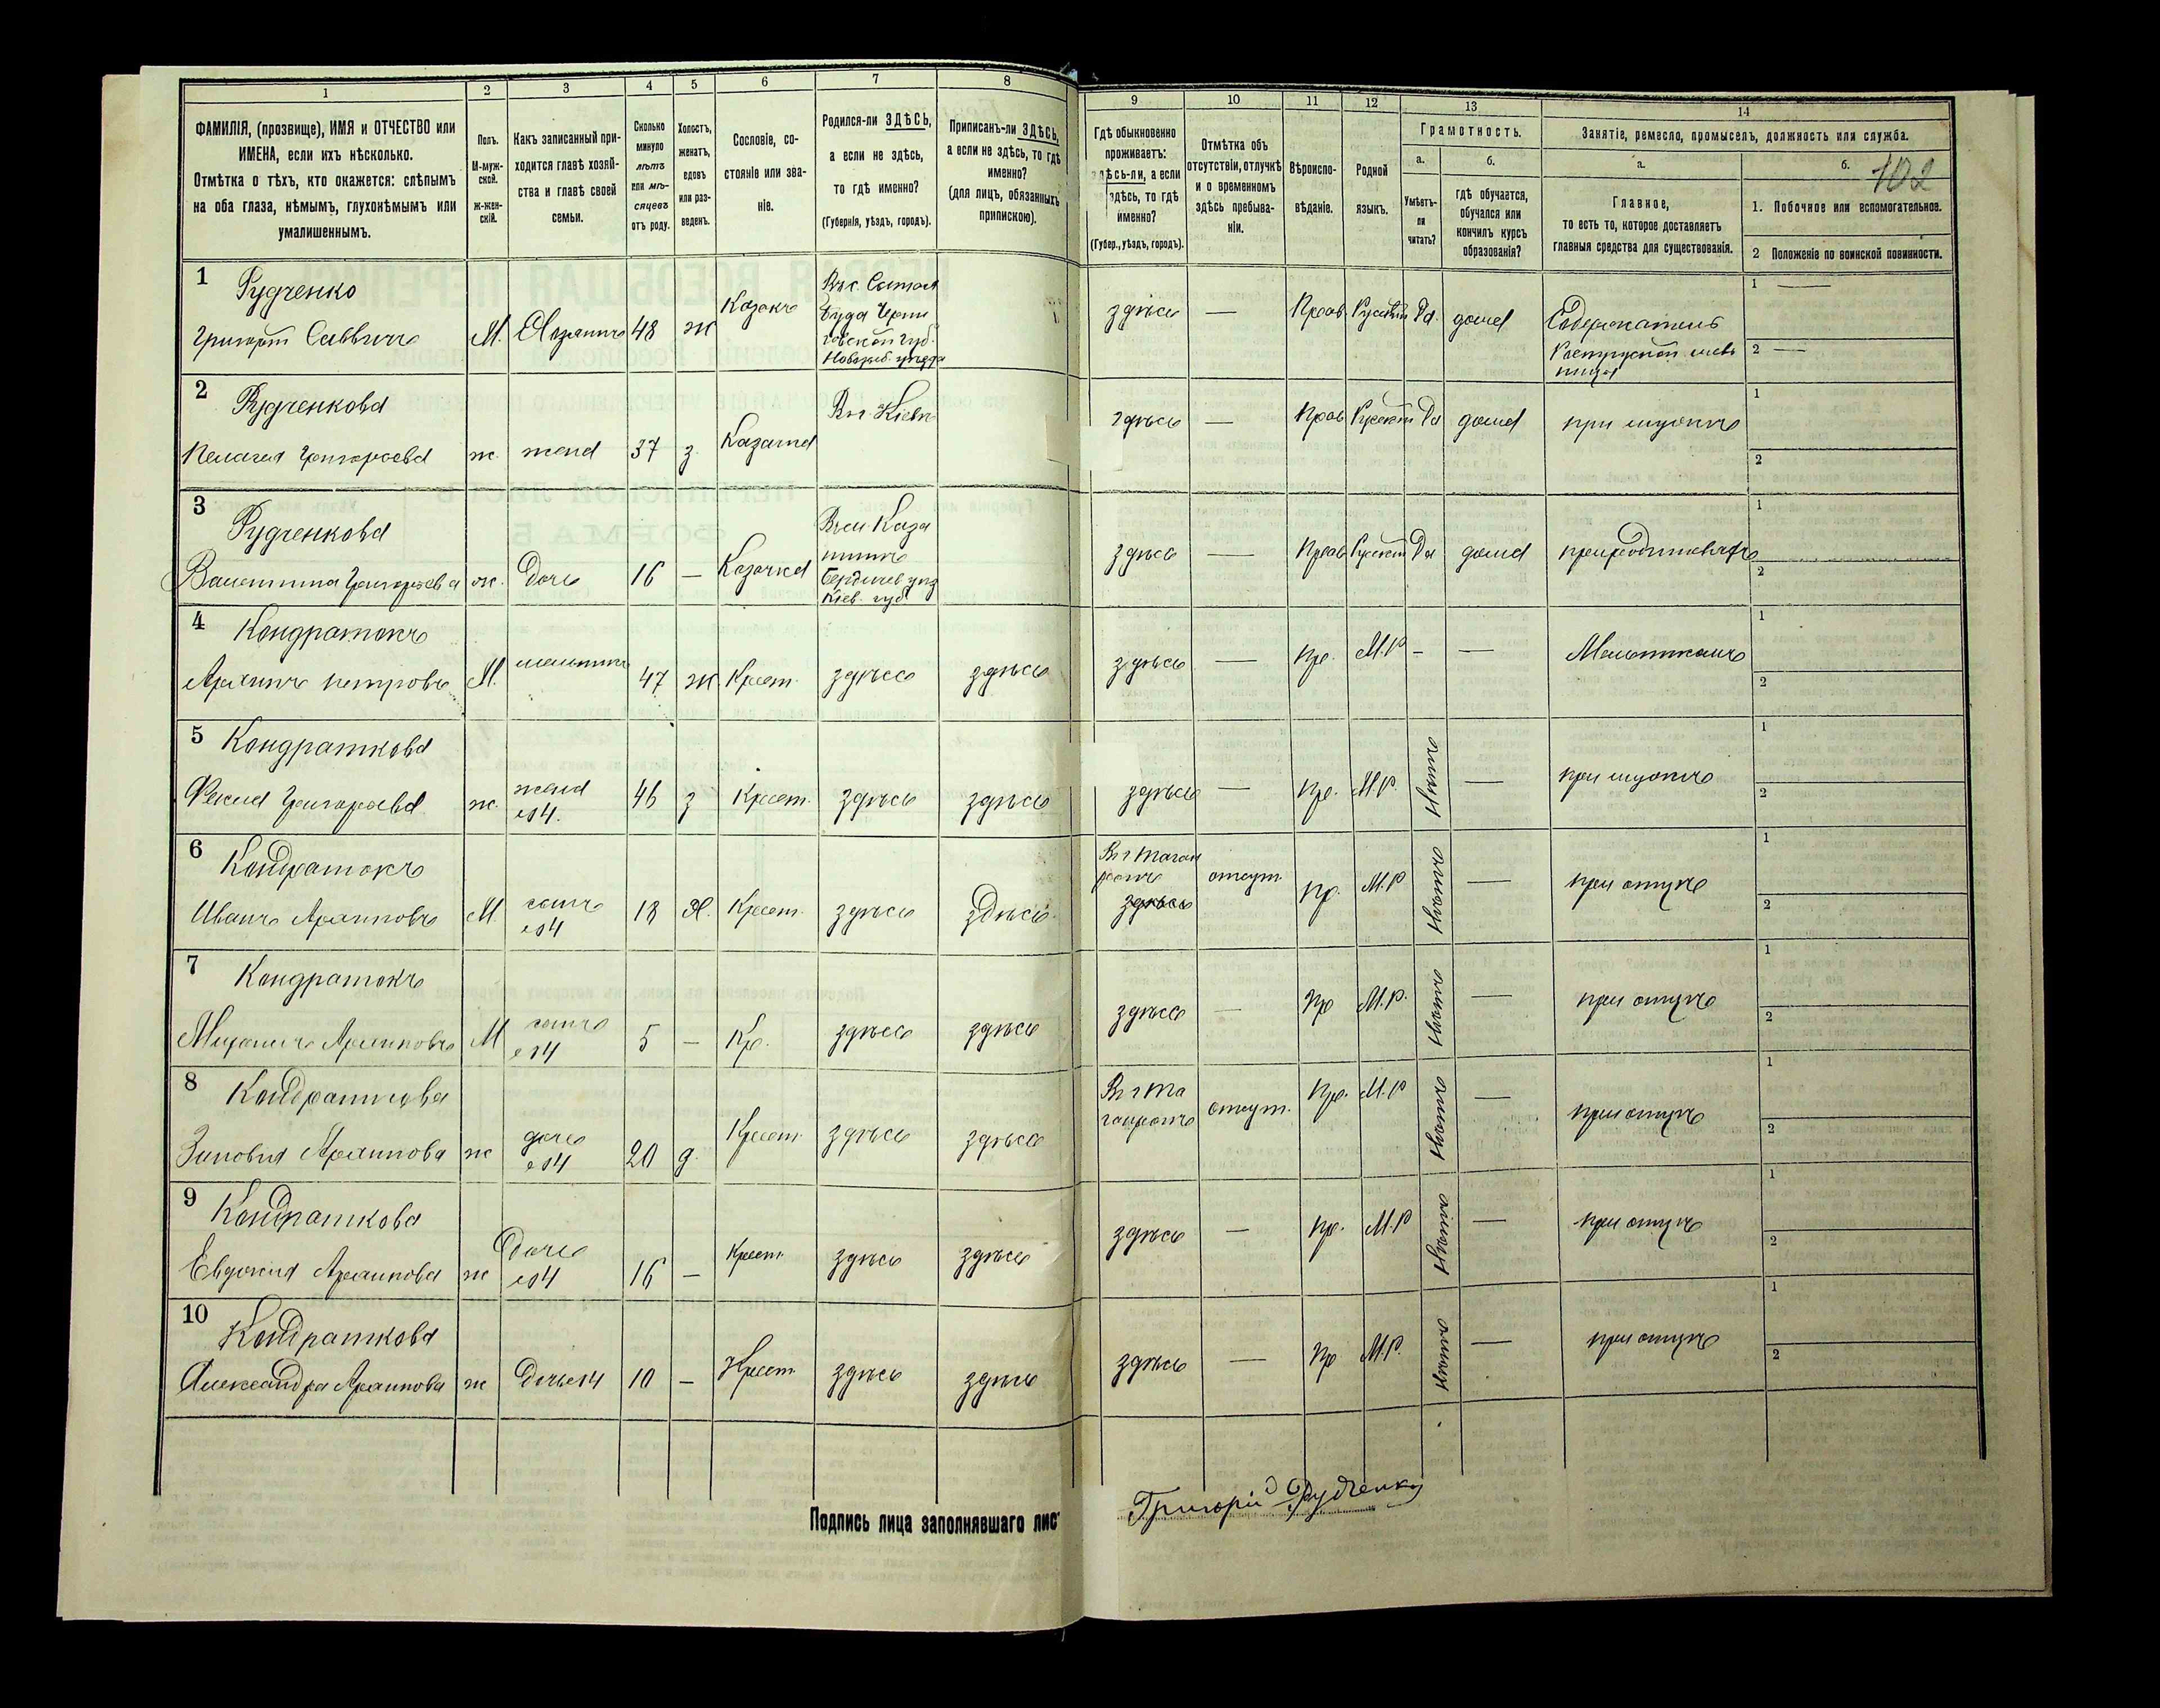 1 2 3 4 5 6 7 8 9 10 11 12 13 14
ФАМИЛІЯ, (прозвище), ИМЯ и ОТЧЕСТВО или
ИМЕНА, если ихъ нѣсколько.
Отмѣтка о тѣхъ, кто окажется: слѣпымъ
на оба глаза, нѣмымъ, глухонѣмымъ или
умалишеннымъ.
Полъ.
М-муж-
ской.
ж-жен-
скій.
Какъ записанный при-
ходится главѣ хозяй-
ства и главѣ своей
семьи.
Сколько
минуло
лѣтъ
или мѣ-
сяцевъ
отъ роду.
Холостъ,
женатъ,
вдовъ
или раз-
веденъ.
Сословіе, со-
стояніе или зва-
ніе.
Родился-ли ЗДѢСЬ,
а если не здѣсь,
то гдѣ именно?
(Губернія, уѣздъ, городъ).
Приписанъ-ли ЗДѢСЬ,
а если не здѣсь, то гдѣ
именно?
(для лицъ, обязанныхъ
припискою).
Гдѣ обыкновенно
проживаетъ:
здѣсь-ли, а если
не здѣсь, то гдѣ
именно?
(Губер., уѣздъ, городъ).
Отмѣтка объ
отсутствіи, отлучкѣ
и о временномъ
здѣсь пребыва-
ніи.
Вѣроиспо-
вѣданіе.
Родной
языкъ.
Грамотность.
а.
Умѣетъ-
ли
читать?
б.
гдѣ обучается,
обучался или
кончилъ курсъ
образованія?
Занятіе, ремесло, промыселъ, должность или служба.
а.
Главное,
то есть то, которое доставляетъ
главныя средства для существованія.
б.
102
1. Побочное или вспомогательное.
2 Положеніе по воинской повинности.
1 Рудченко
Григорій Саввичъ М. Хозяинъ 48 ж Казакъ
здѣсь — Прав Русскій Да. дома Содержатель
2 Рудченкова
Пелагея Григорьева ж. жена 37 з. Казачка
Въ г. Кіевѣ
здѣсь — Прав Русскій Да дома при мужѣ
3 Рудченкова
Валентина Григорьева ж. Дочь 16 — Казачка
Бердичев уѣз
Кіев. губ.
здѣсь — Прав Русскій Да дома при родителяхъ
4 Кондратокъ
Архипъ Петровъ М. 47 ж Крест. здѣсь здѣсь
здѣсь — Пр. М.Р — —
5 Кондраткова
Фекла Григорьева ж. жена
№4. 46 з Крест. здѣсь здѣсь
здѣсь — Пр. М.Р. Нѣтъ — при мужѣ
6 Кондратокъ
Иванъ Архиповъ М. сынъ
№4 18 Х. Крест. здѣсь здѣсь
Въ г Таган
рогѣ
здѣсь
отсут. Пр. М.Р Нѣтъ — при отцѣ
7 Кондратокъ
Михаилъ Архиповъ М сынъ
№4 5 — Кр. здѣсь здѣсь
здѣсь — Пр М.Р. Нѣтъ — при отцѣ
8 Кондраткова
Зиновія Архипова ж дочь
№4 20 д. Крест. здѣсь здѣсь
Въ г Та
ганрогѣ
отсут. Пр. М.Р Нѣтъ — при отцѣ
9 Кондраткова
Евдокія Архипова ж Дочь
№4 16 — Крест. здѣсь здѣсь
здѣсь — Пр. М.Р Нѣтъ — при отцѣ
10 Кондраткова
Александра Архипова ж Дочь №4 10 — Крест. здѣсь здѣсь
здѣсь — Пр М.Р. Нѣтъ — при отцѣ
Подпись лица заполнявшаго лис
Григорій Рудченко